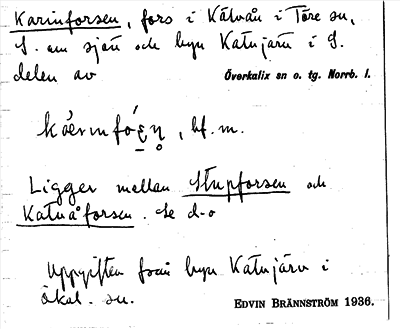 Karinforsen, fors i Kätvån i Töre sn,
S. om sjön och byn Katajarvi i S.
delen av Överkalix sn o. tg. Norrb. l.
, bf. m.
Ligger mellan Stupforsen och
Katvåforsen. Se d-o
Uppgiften från byn Katajärv i
Ökal. sn. EDVIN BRÄNNSTRÖM 1936.